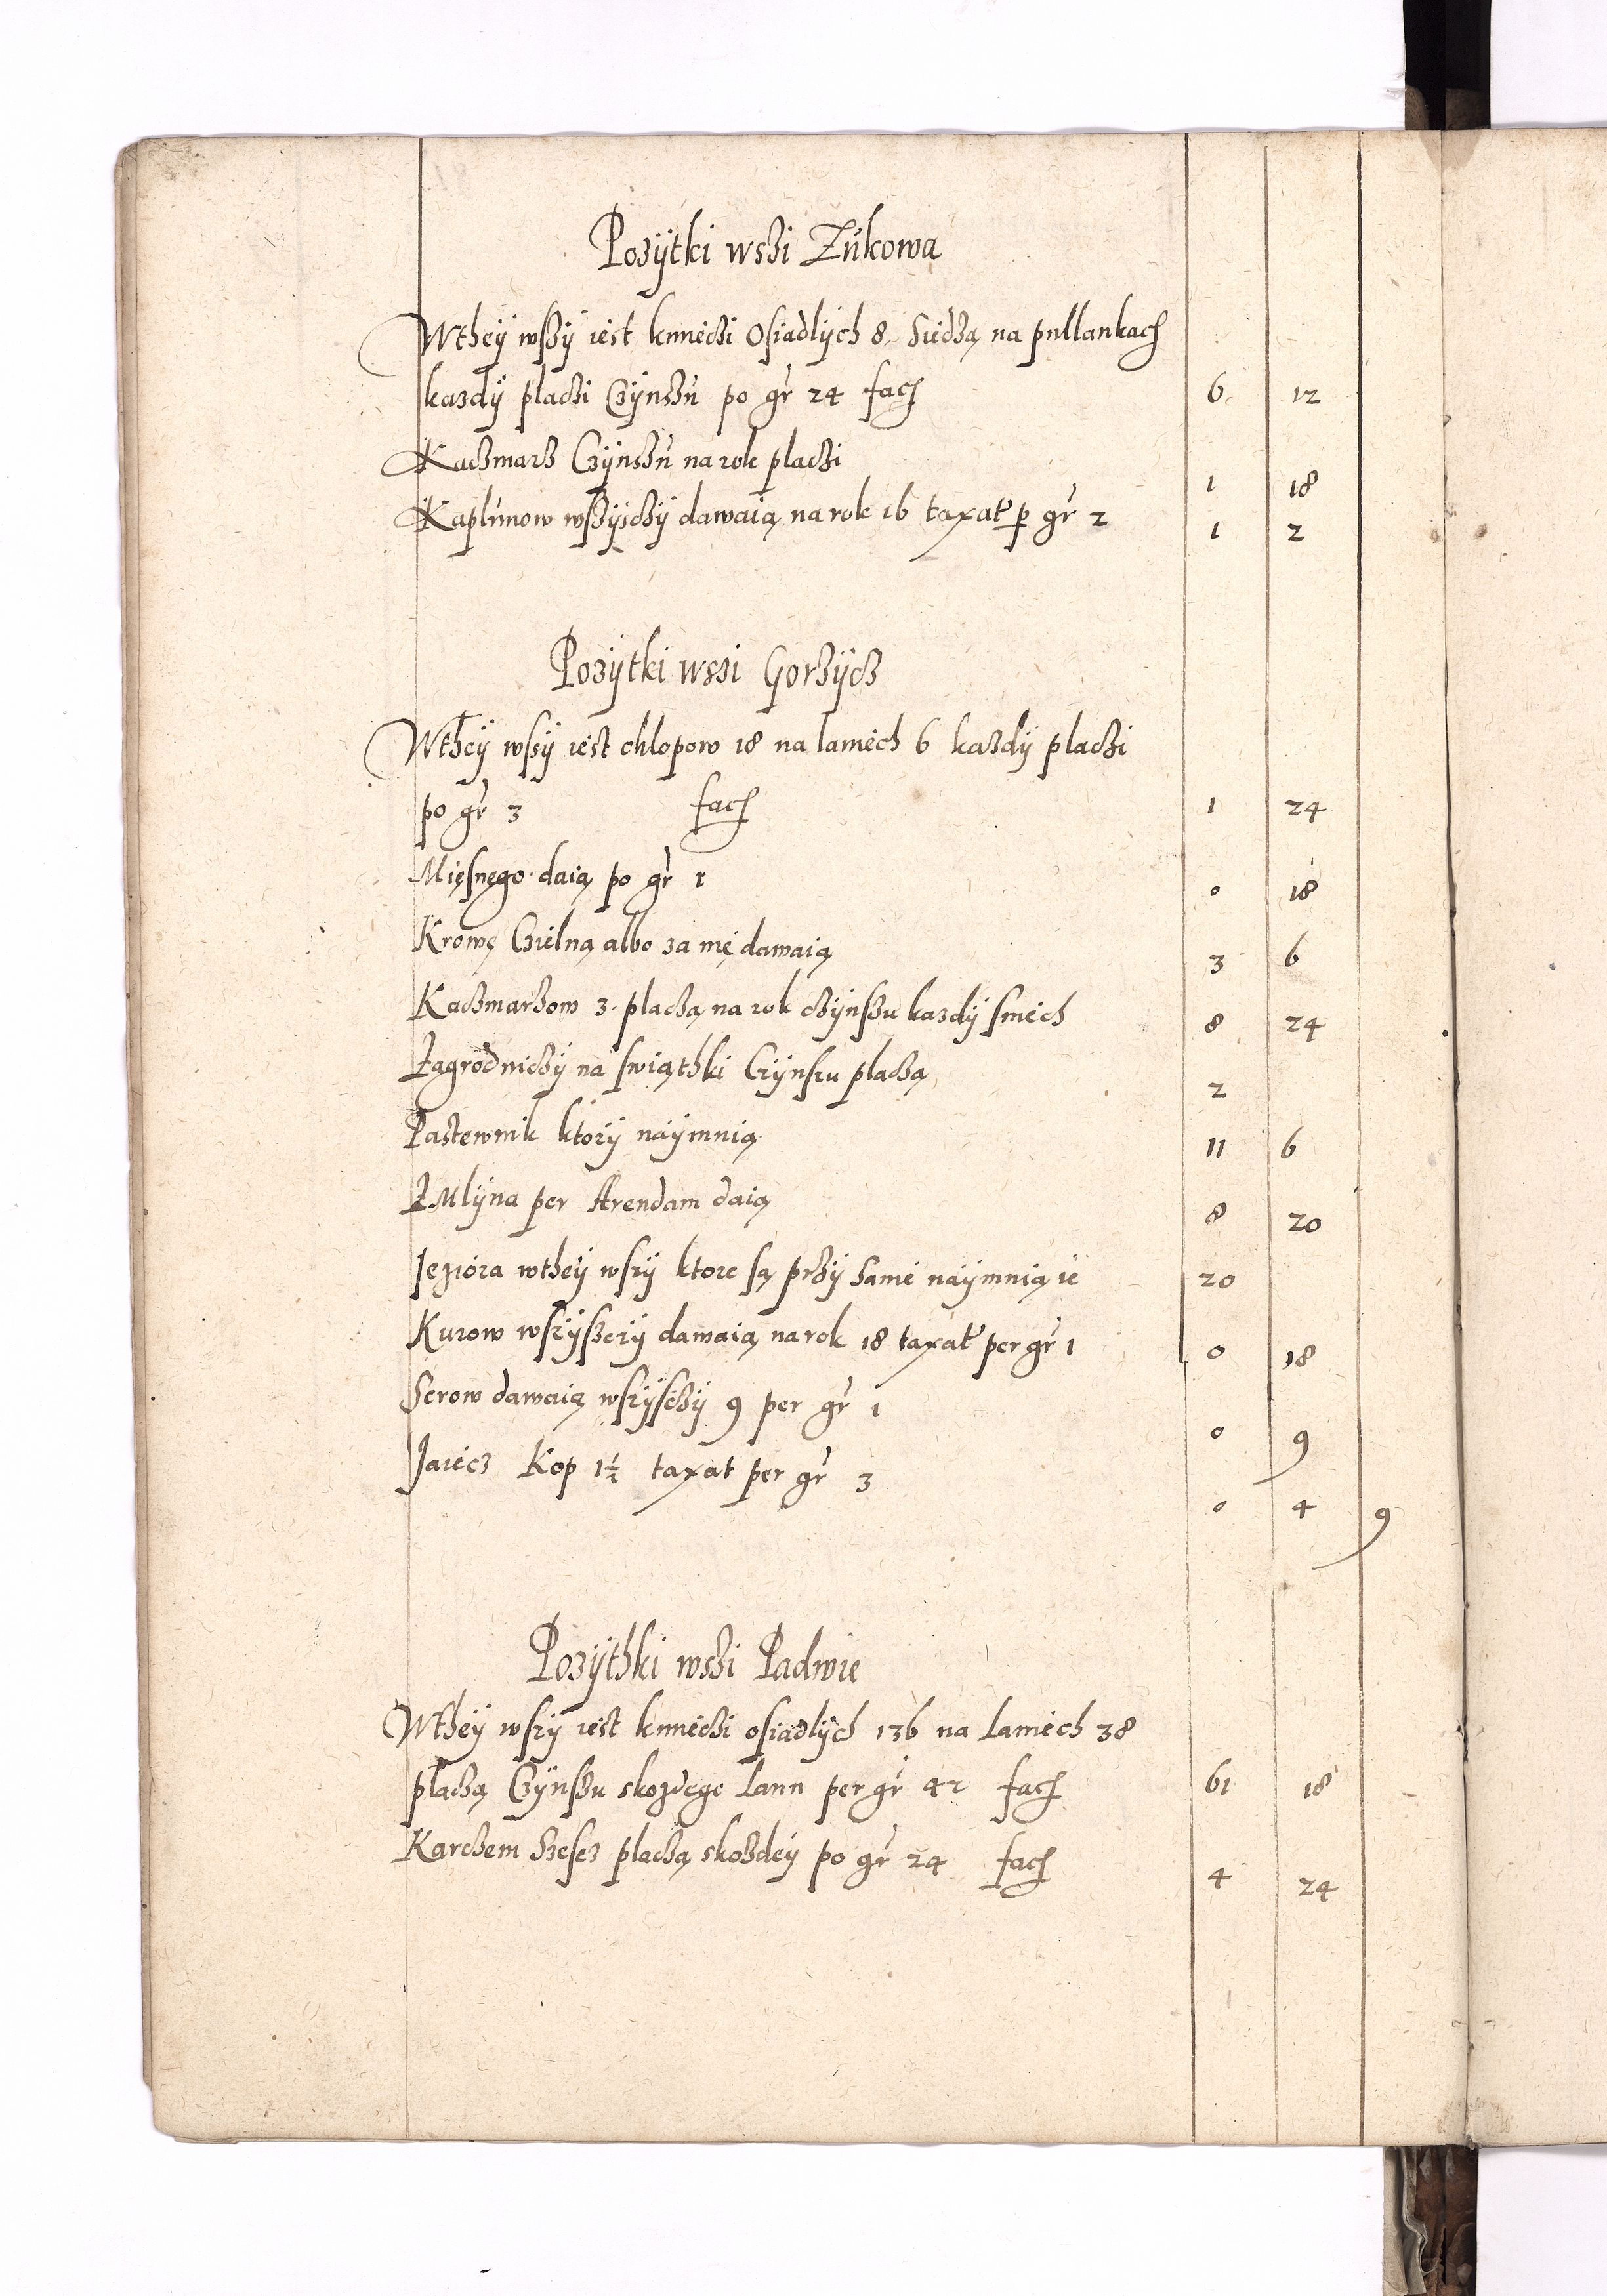 Pozÿtki wsʒi Zukowa
Wtheÿ wszÿ iest kmieczi Osiadlÿch 8. Siedzą na pullankach
kazdÿ placzi Czÿnszu po gr 24 fach 6 12
Kaczmarz Czÿnszu na rok placzi 1 18
Kaplunow wszÿsczÿ dawaią na rok 16 taxat p gr 2 1 2
Pozÿtki wszi Gorzÿcz
Wtheÿ wsÿ iest chlopow 18 na lamech 6 kazdÿ placzi
po gr 3 fach 1 24
Mięsnego daią po gr 1 0 18
Krowę Czielną albo za nię dawaią 3 6
Kaczmarzow 3. placzą na rok czÿnszu kazdÿ smech 8 24
Zagrodniczÿ na swiąthki Czÿnszu placzą 2
Pastewnik ktorÿ naÿmuią 11 6
ZMlÿna per Arendam daią 8 20
Jeziora wtheÿ wszÿ ktore są przÿ Sanie naÿmuią ie 20
Kurow wszÿsczÿ dawaią na rok 18 taxat per gr 1 0 18
Serow dawaią wszÿsczÿ 9 per gr 1 0 9
Jaiecz Kop 1½ taxat per gr 3 0 4 9
Pozÿthki wszi Padwie
Wtheÿ wszÿ iest kmieczi osiadlÿch 136 na Lamech 38
placzą Czÿnszu skozdego Lann per gr 42 fach 61 18
Karczem Szesz placzą skozdeÿ po gr 24 fach 4 24